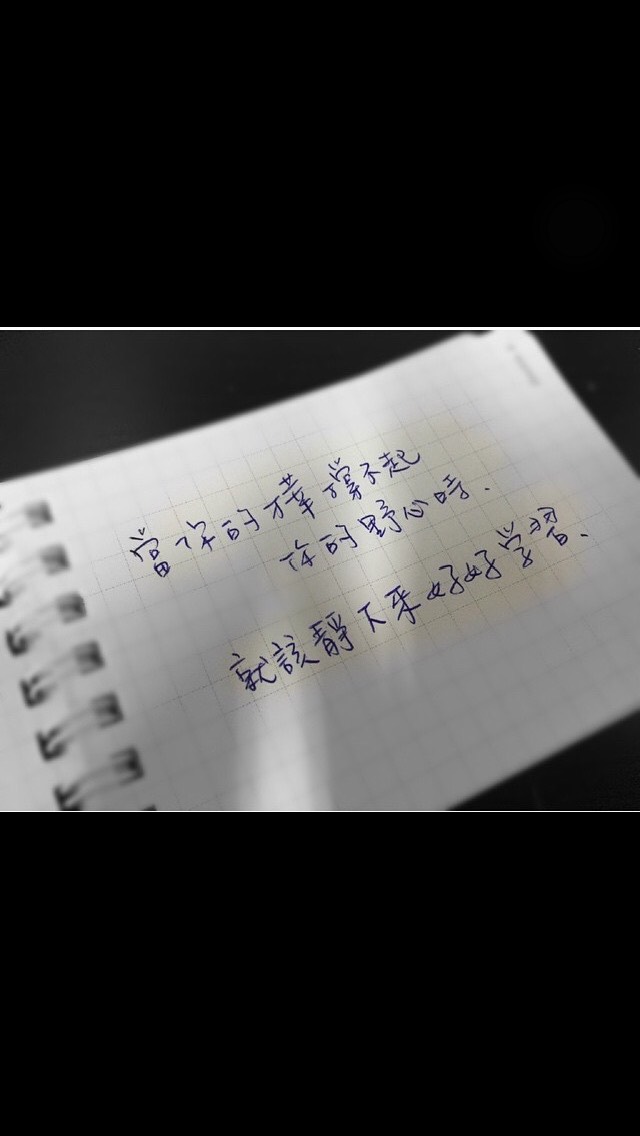 當你的才華撐不起
你的野心時.
就該靜下來好好学習.